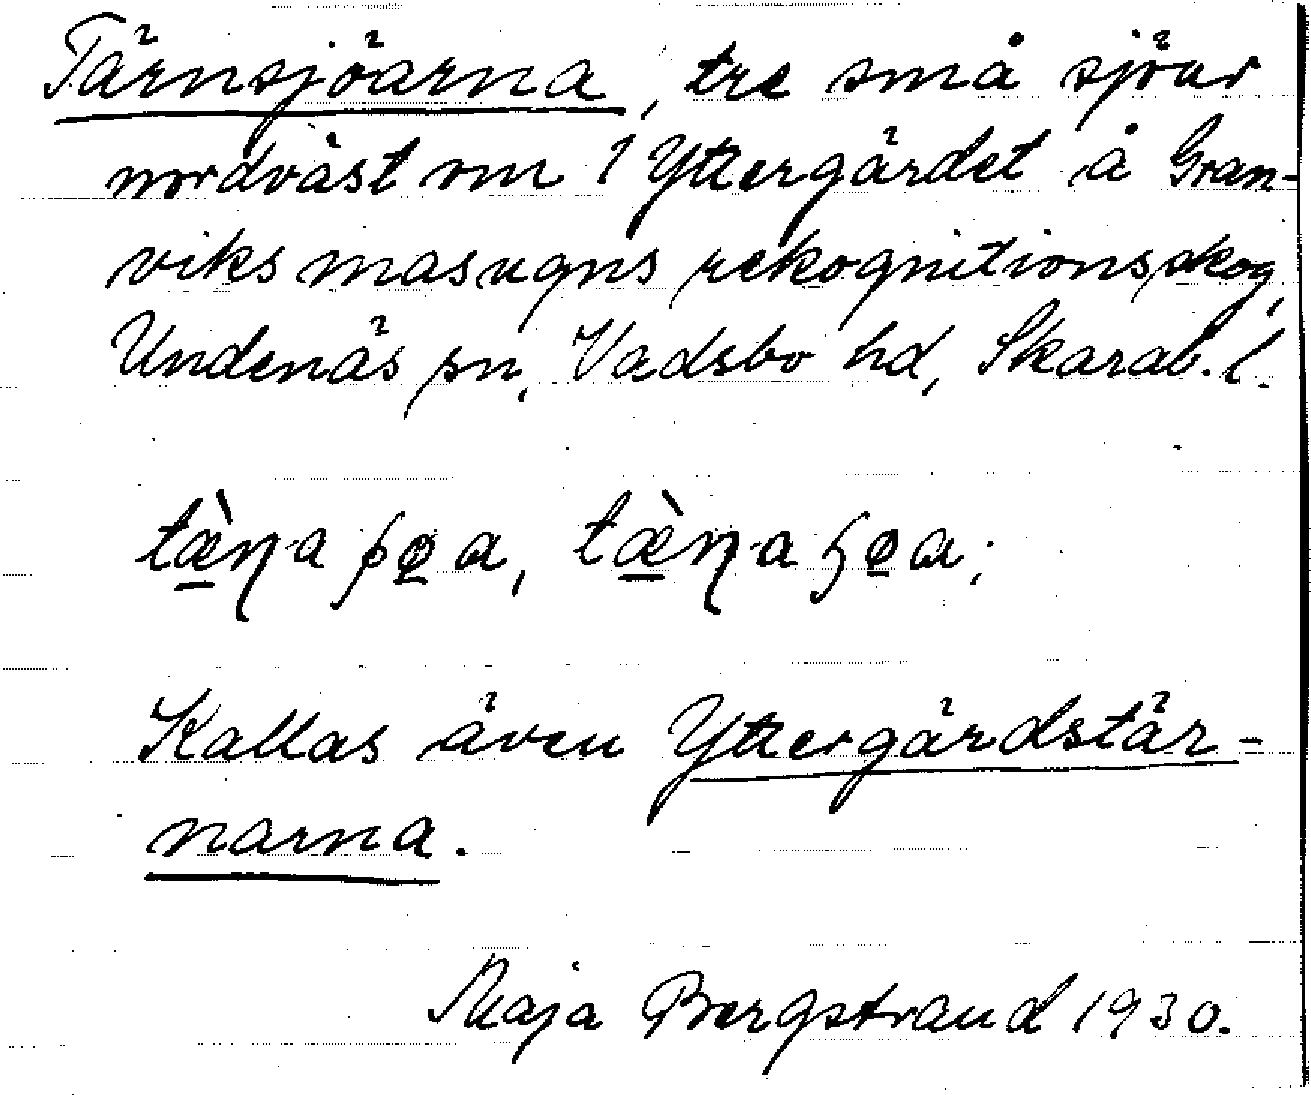 Tärnsjöarna, tre små sjöar
nordväst om 1 Yttergärdet å Gran-
viks masugns rekognitionsskog,
Undenäs sn, Vadsbo hd, Skarab. l.
Kallas även Yttergärdstär-
narna.
Maja Bergstrand 1930.